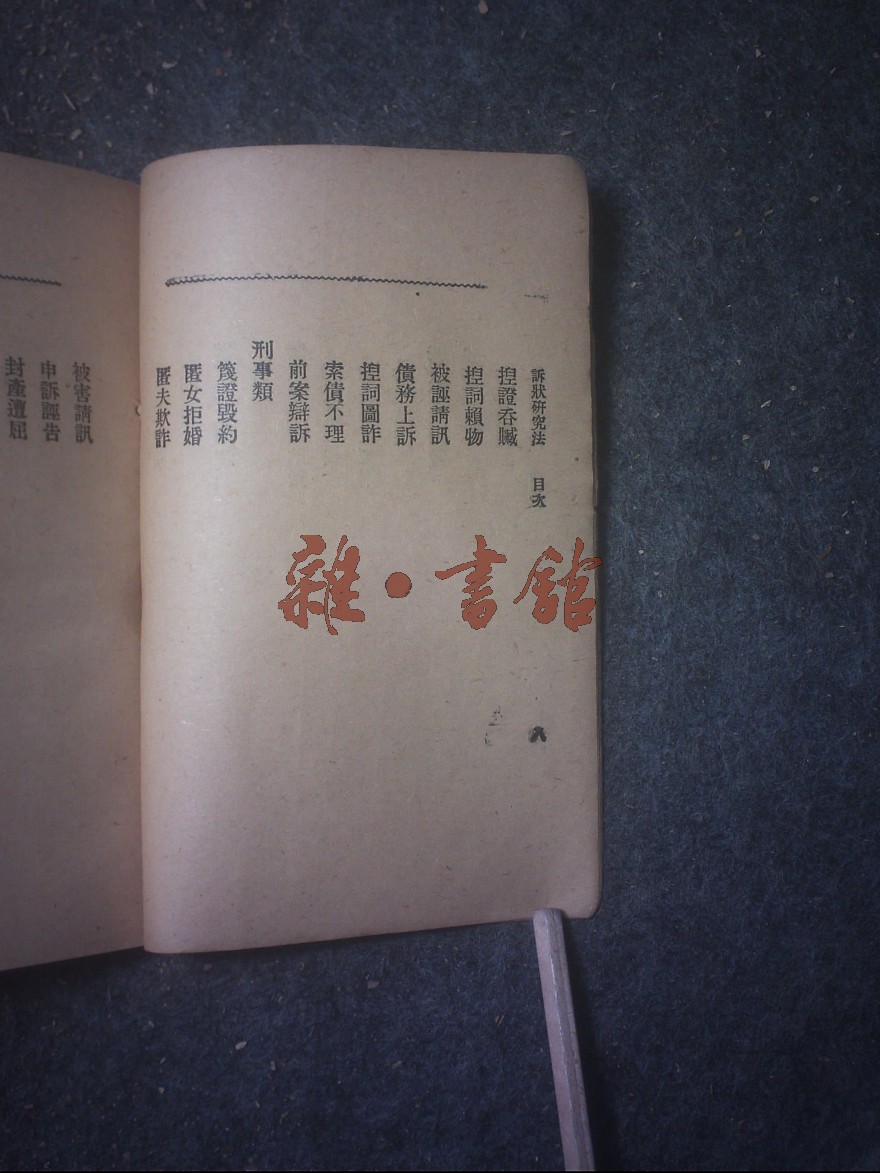 訴狀研究法 目次 八
揑證吞贓
揑詞賴物
被誣請訊
債務上訴
揑詞圖詐
索債不理
前案辯訴
刑事類
篾證毀約
匿女拒婚
匿夫欺詐
被害請訊
申訴誣告
封產遭屈
雜·書館